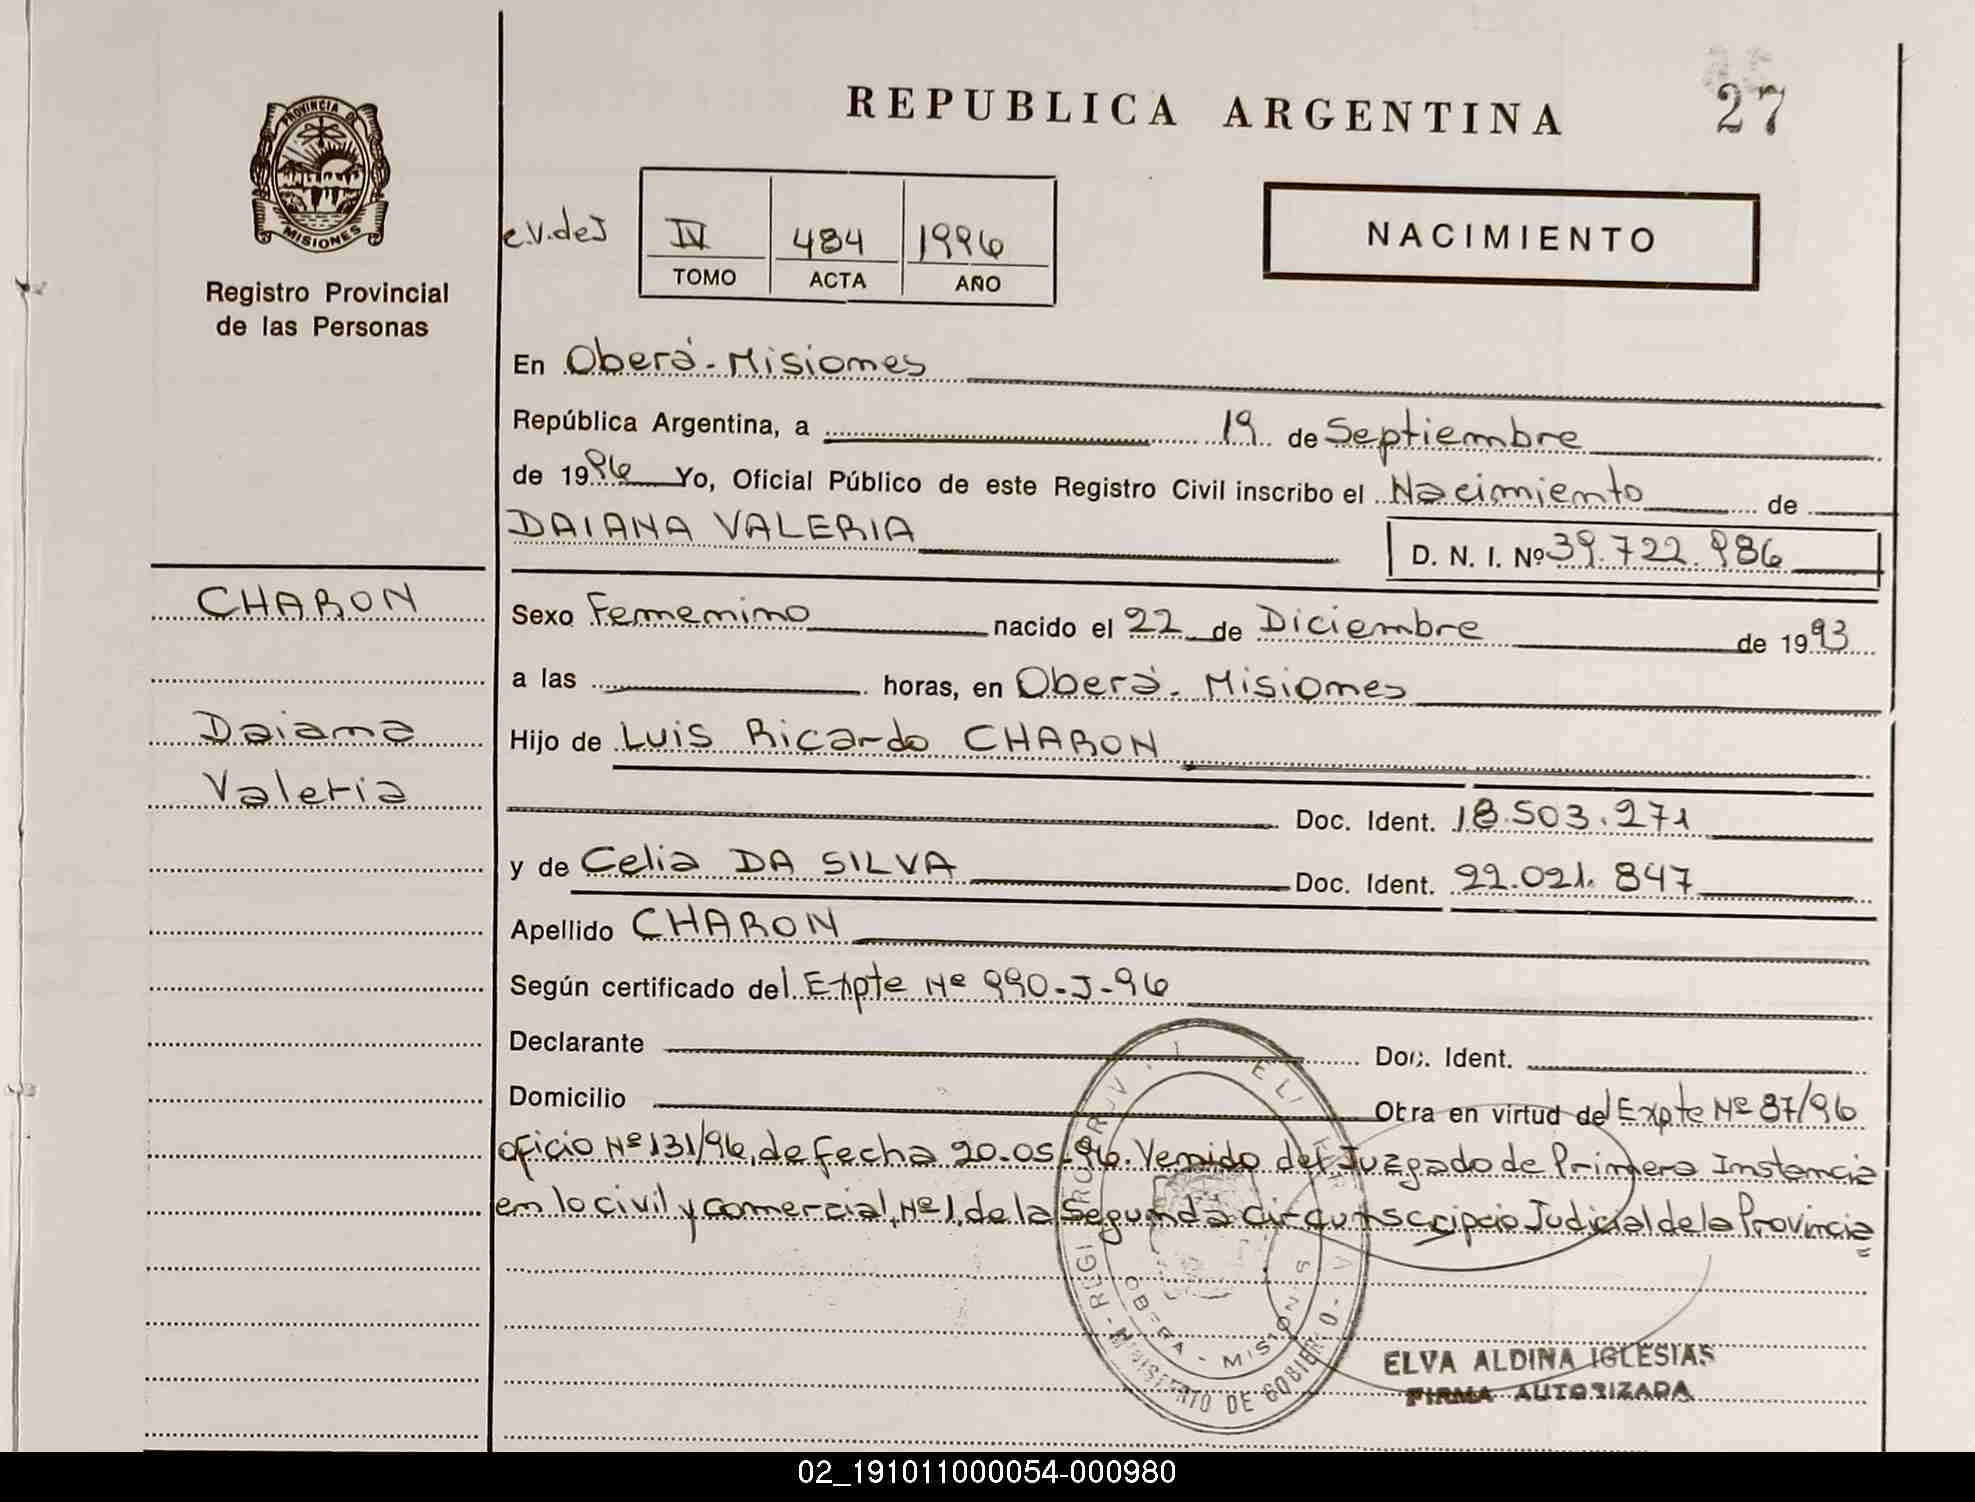 REPUBLICA ARGENTINA
27
PROVINCIA DE
MISIONES
Registro Provincial
de las Personas
e.V.deJ
IV 484 1996
TOMO ACTA AÑO
NACIMIENTO
En Oberá-Misiones
República Argentina, a 19 de Septiembre
de 1996 Yo, Oficial Público de este Registro Civil inscribo el Nacimiento de
DAIANA VALERIA
D. N. I. Nº 39.722.986
CHARON
Sexo Femenino nacido el 22 de Diciembre de 1993
a las horas, en Oberá-Misiones
Daiana
Hijo de Luis Ricardo CHARON
Valeria
Doc. Ident. 18.503.271
y de Celia DA SILVA Doc. Ident. 22.021.847
Apellido CHARON
Según certificado del Expte Nº 990-J-96
Declarante Doc. Ident.
Domicilio Otra en virtud del Expte Nº 87/96
oficio Nº 131/96, de fecha 20-05-96. Venido del Juzgado de Primera Instancia
en lo civil y comercial, Nº 1, de la Segunda circunscripcio Judicial de la Provincia
OBERA - MISIONES
MINISTERIO DE GOBIERNO
ELVA ALDINA IGLESIAS
FIRMA AUTORIZADA
02_191011000054-000980